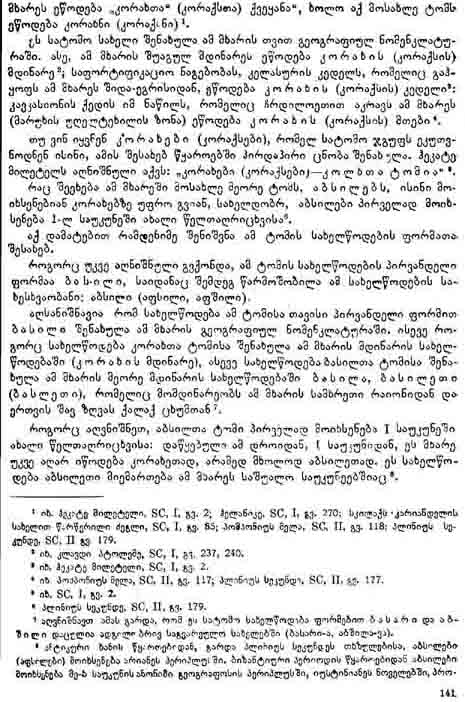 მხარეს ეწოდება „კორახთა“ (კორაქსთა) ქვეყანა“, ხოლო აქ მოსახლე ტომს
ეწოდება კორახნი (კორაქსნი)¹.
ეს სატომო სახელი შენახულა ამ მხარის თვით გეოგრაფიულ ნომენკლატუ-
რაში. ასე, ამ მხარის შუაგულ მდინარეს ეწოდება კორახის (კორაქსის)
მდინარე²; საფორტიფიკაციო ნაგებობას, კელასურის კედელს, რომელიც გაჰ-
ყოფს ამ მხარეს შიდა-ეგრისიდან, ეწოდება კორახის (კორაქსის) კედელი³;
კავკასიონის ქედის იმ ნაწილს, რომელიც ჩრდილოეთით აკრავს ამ მხარეს
(მარუხის უღელტეხილის ზონა) ეწოდება კორახის (კორაქსის) მთები⁴.
თუ ვინ იყვნენ კორახები (კორაქსები), რომელ სატომო ჯგუფს ეკუთვ-
ნოდნენ ისინი, ამის შესახებ წყაროებში პირდაპირი ცნობა შენახულა. ჰეკატე
მილეტელს აღნიშნული აქვს: „კორახები (კორაქსები)—კოლხთა ტომია“⁵.
რაც შეეხება ამ მხარეში მოსახლე მეორე ტომს, აბსილებს, ისინი მო-
იხსენებიან კორახებზე უფრო გვიან, სახელდობრ, აბსილები პირველად მოიხ-
სენება 1-ლ საუკუნეში ახალი წელთაღრიცხვისა⁶.
აქ დამატებით რამდენიმე შენიშვნა ამ ტომის სახელწოდების ფორმათა
შესახებ.
როგორც უკვე აღნიშნული გვქონდა, ამ ტომის სახელწოდების პირვანდელი
ფორმაა ბასილი, საიდანაც შემდეგ წარმოშობილა ამ სახელწოდების სა-
ხესხვაობანი: აბსილი (აფსილი, აფშილი).
აღსანიშნავია რომ სახელწოდება ამ ტომისა თავისი პირვანდელი ფორმით
ბასილი შენახულა ამ მხარის გეოგრაფიულ ნომენკლატურაში. ისევე რო-
გორც სახელწოდება კორახთა ტომისა შენახულა ამ მხარის მდინარის სახელ-
წოდებაში (კორახის მდინარე), ასევე სახელწოდება ბასილთა ტომისა შენა-
ხულა ამ მხარის მეორე მდინარის სახელწოდებაში ბასილა, ბასილეთი
(ბასლეთი), რომელიც მომდინარეობს ამ მხარის სამხრეთი რაიონიდან და
ერთვის შავ ზღვას ქალაქ ცხუმთან⁷.
როგორც აღვნიშნეთ, აბსილთა ტომი პირველად მოიხსენება I საუკუნეში
ახალი წელთაღრიცხვისა: დაწყებული ამ დროიდან, I საუკუნიდან, ეს მხარე
უკვე აღარ იწოდება კორახეთად, არამედ მხოლოდ აბსილეთად. ეს სახელწო-
დება აბსილეთი მიემართება ამ მხარეს საშუალო საუკუნეებშიაც⁸.
¹ იხ. ჰეკატე მილეტელი, SC, I, გვ. 2; ჰელანიკე, SC, I, გვ. 270; სკილაქს კარიანდელის
სახელით წარწერილი ძეგლი, SC, I, გვ. 85; პომპონიუს მელა, SC, II, გვ. 118; პლინიუს სე-
კუნდე, SC, II გვ. 179.
² იხ. კლავდი პტოლემე, SC, I, გვ. 237, 240.
³ იხ. ჰეკატე მილეტელი, SC, I, გვ. 2.
⁴ იხ. პომპონიუს მელა, SC, II, გვ. 117; პლინიუს სეკუნდა, SC, II, გვ. 177.
⁵ იხ. SC, I, გვ. 2.
⁶ პლინიუს სეკუნდე, SC, II, გვ. 179.
⁷ აღვნიშნავთ ამას გარდა, რომ ეს სატომო სახელწოდება ფორმებით ბასარი და აბ-
შილი დაცულია ადგილობრივ საგვარეულო სახელებში (ბასარი-ა, აბშილა-ვა).
⁸ ანტიკური ხანის წყაროებიდან, გარდა პლინიუს სეკუნდეს თხზულებისა, აბსილები
(აფსილები) მოიხსენება არიანეს პერიპლუსში. ბიზანტიური პერიოდის წყაროებიდან აბსილები
მოიხსენება მე-ხ საუკუნის ანონიმი გეოგრაფოსის პერიპლუსში, იუსტინიანეს ნოველებში, პრო-
141